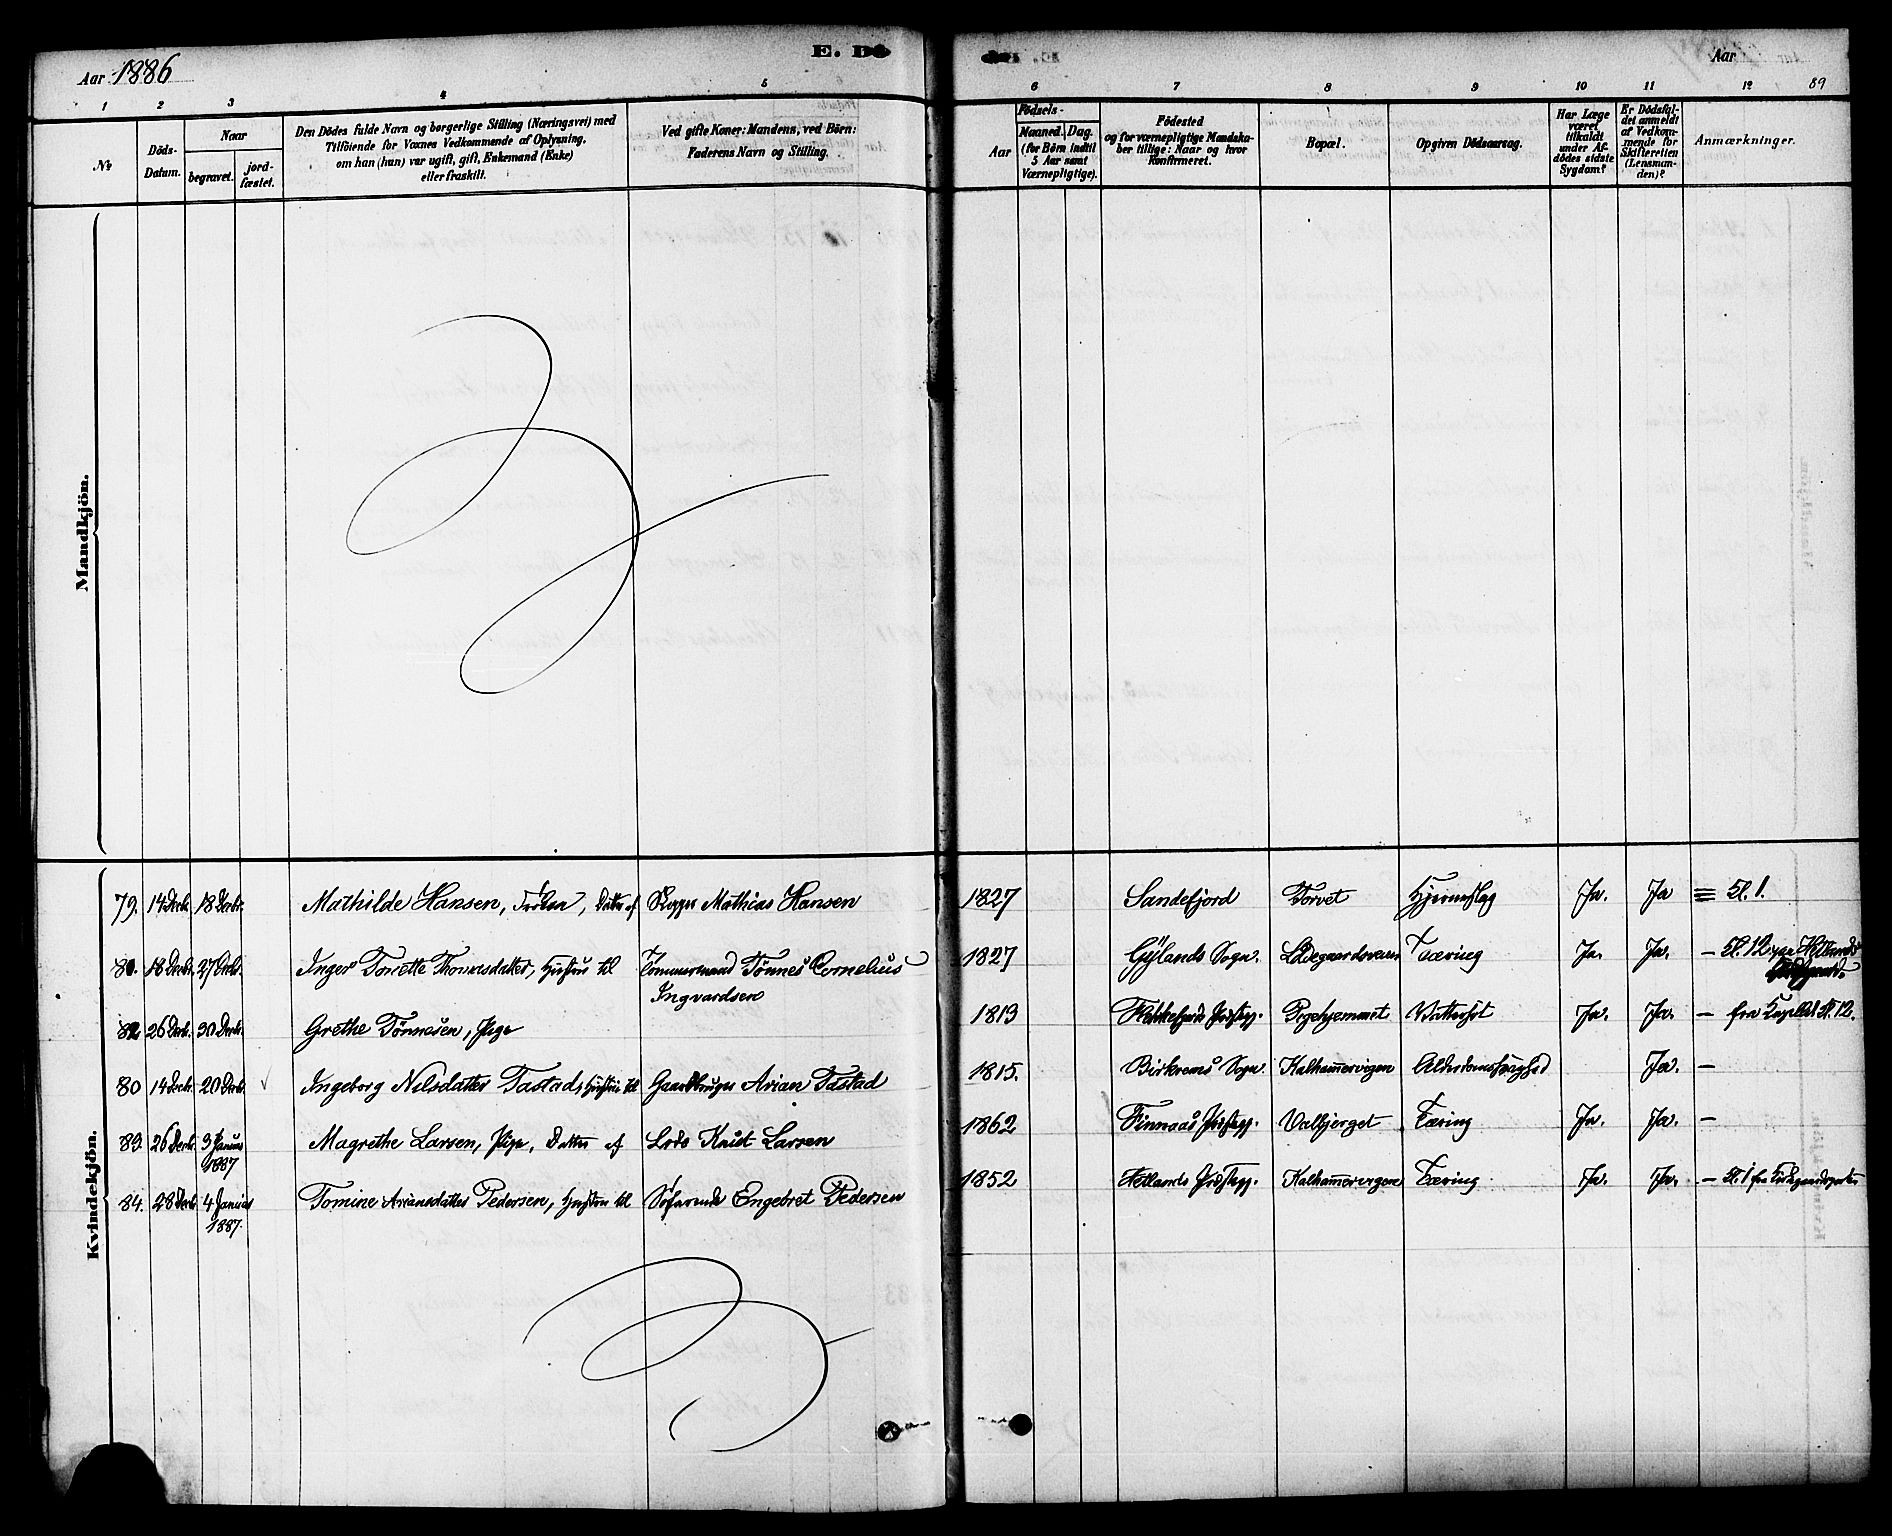 Aar 1886
E. Dö
Aar
89
1 2 3 4 5 6 7 8 9 10 11 12
No
Döds-Datum.
Naar
begravet.
jord-fæstet.
Den Dödes fulde Navn og borgerlige Stilling (Næringsvei) med
Tilföiende for Voxnes Vedkommende af Oplysning,
om han (hun) var ugift, gift, Enkemand (Enke)
eller fraskilt.
Ved gifte Koner: Mandens, ved Börn:
Faderens Navn og Stilling.
Aar
Födsels-
Maaned. Dag.
(for Börn indtil
5 Aar samt
Værnepligtige).
Födested
og for værnepligtige Mandska-
ber tillige: Naar og hvor
Konfirmeret.
Bopæl.
Opgiven Dödsaarsag.
Har Læge
været
tilkaldt
under Af-
dödes sidste
Sygdom?
Er Dödsfal-
det anmeldt
af Vedkom-
mende for
Skifteretten
(Lensman-
den)?
Anmærkninger.
Mandkjön.
Kvindekjön.
79. 14 Decbr. 18 Decbr. Mathilde Hansen, Frøken, Datter af Skipper Mathias Hansen 1827 Sandefjord Torvet Hjerneslag Ja. Ja Kl. 1.
18 Decbr. 27 Decb. Inger Tonette Thomasdatter, Hustru til Tømmermand Tönnes Cornelius 1827 Gylands Sogn. Ladegaardsveien Tæring Ja. Ja. — Kl. 12 paa Hetlands
Ingvardsen
82 26 Decbr. 30 Decbr. Grethe Tönnesen, Pige 1813 Flekkefjords Præstegj. Pigehjemmet Vattersot Ja. Ja. — fra Kapellet Kl. 12.
80 14 Decbr. 20 Decbr. Ingeborg Nilsdatter Tastad, Hustru til Gaardbruger Arian Tastad 1815. Birkrems Sogn. Kalhammervigen Alderdomssvaghed Ja. —
83. 26 Decbr. 3 Januar Magrethe Larsen, Pige, Datter af Lods Knud Larsen 1862 Finnaas Præstegj. Valbjerget Tæring Ja. Ja. —
1887
84. 28 Decbr 4 Januar Tomine Ariansdatter Pedersen, Hustru til Søfarende Engebret Pedersen 1852 Hetlands Præstegj. Kalhammervigen Tæring Ja. Ja. — Kl. 1 fra Kirkegaardsporten
1887.